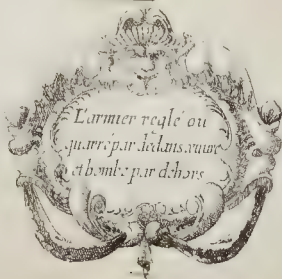 Larmier reglé ou
quarré par dedans, euure
et bombé par dehors